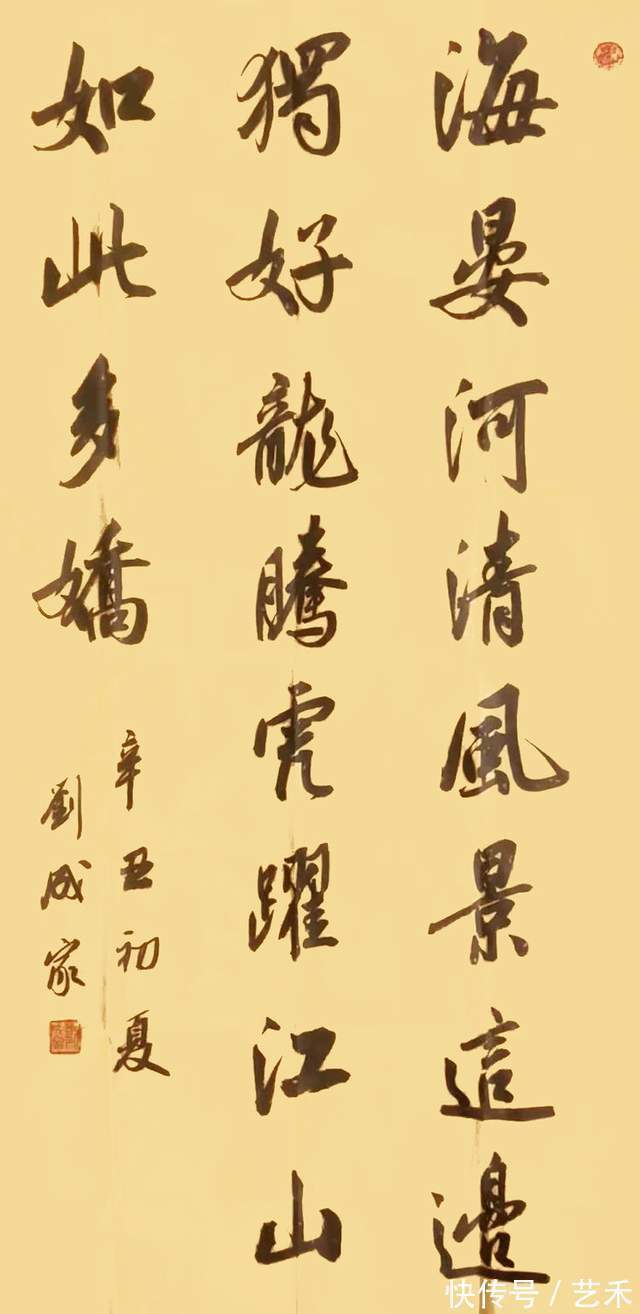 海晏河清風景這邊
獨好龍騰虎躍江山
如此多嬌
辛丑初夏
劉成家
快传号/艺禾